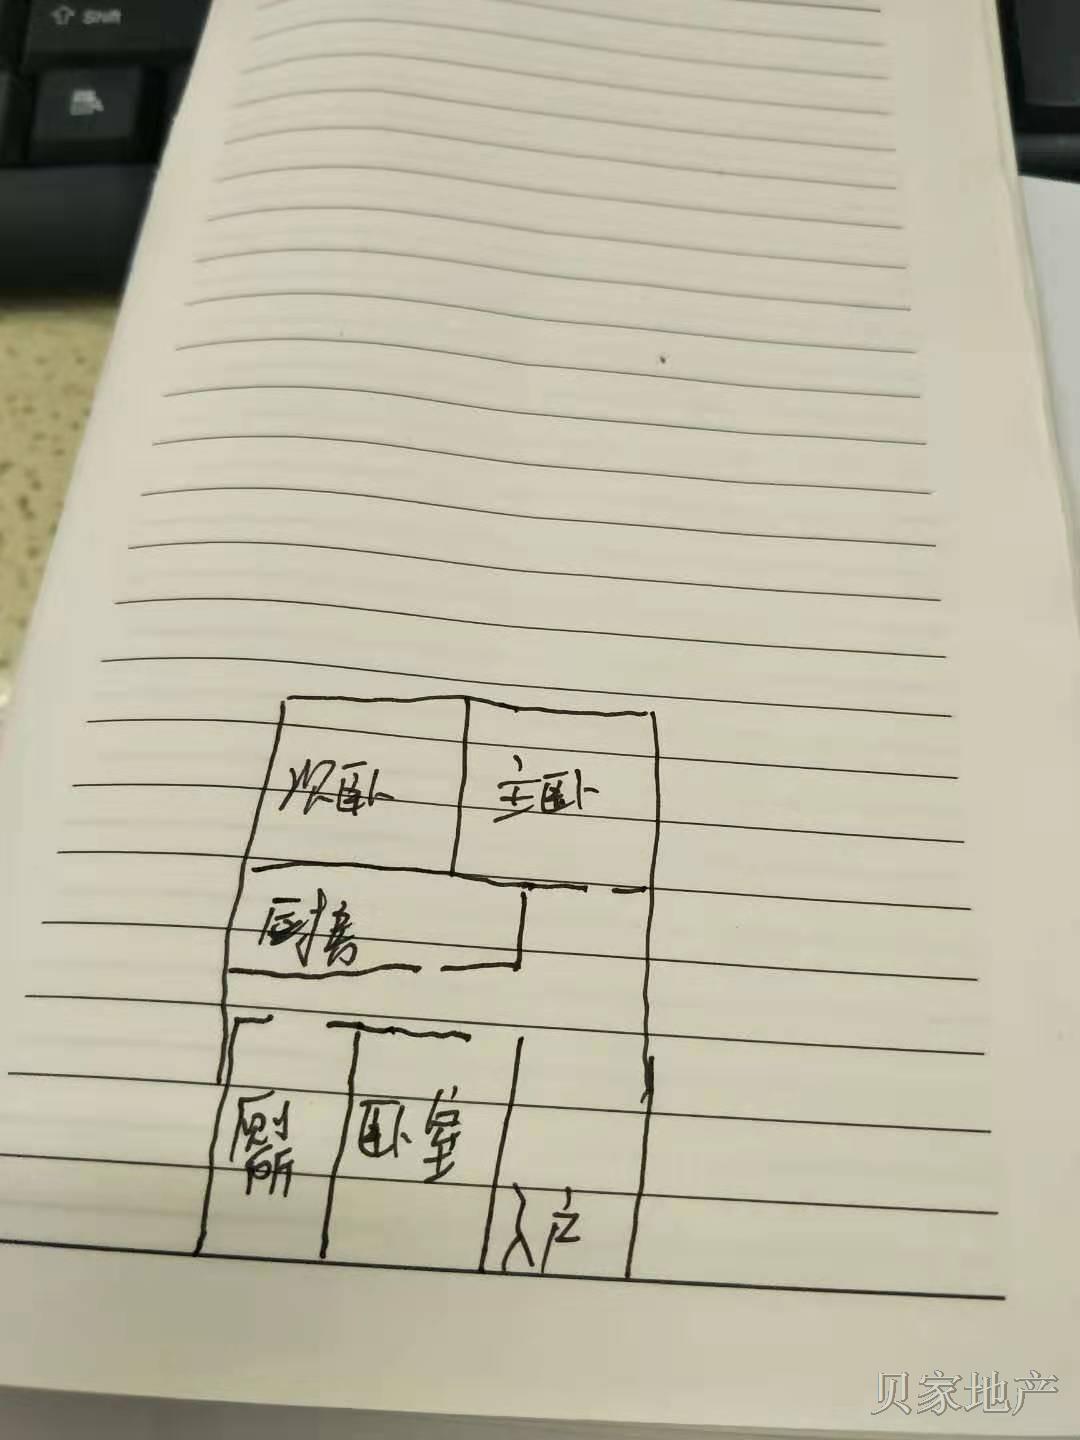 Shift
次卧
主卧
厨房
厕所
卧室
入户
贝家地产